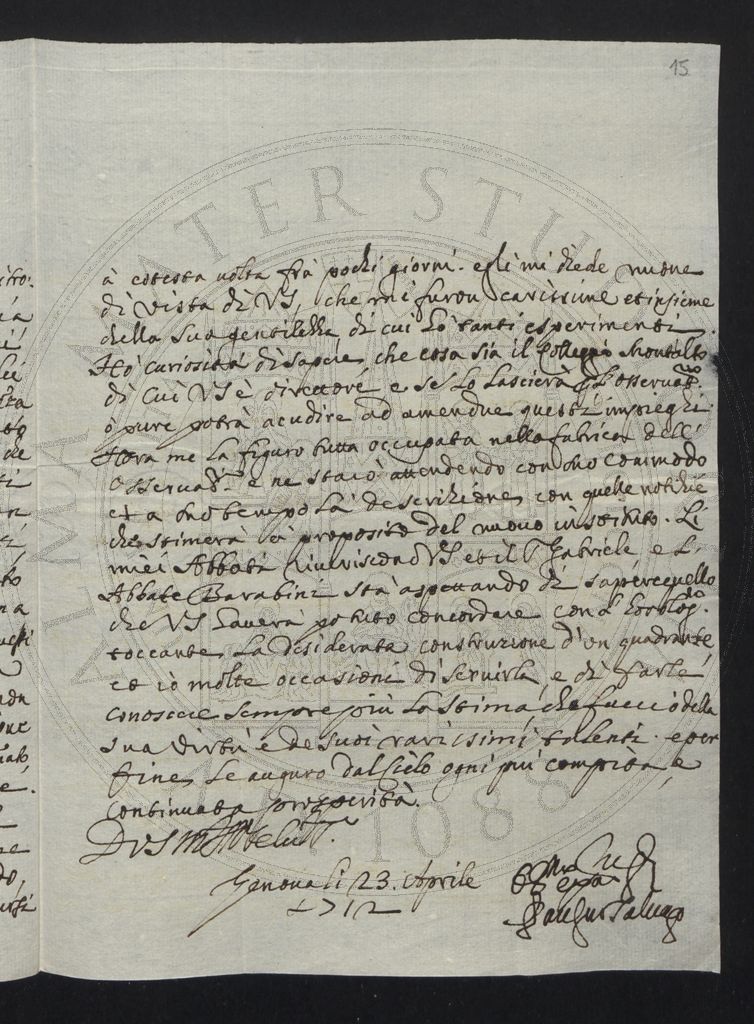 15
à cotesta volta frà pochi giorni. egli mi diede nuove
di vista di VS, che mi furon carissime et insieme
della sua gentilezza di cui hò tanti esperimenti.
Hò curiosità di sapere che cosa sia il Collegio Montalto
di cui VS è direttore e se lo lascierà l'osservat.
ò pure potrà acudire ad amendue questi impieghi.
Hora me la figuro tutta occupata nella fabrica dell'
Osservat. e ne starò attendendo con suo commodo
et a suo tempo la descrizione, con quelle notizie
che stimerà à proposito del nuovo instituto. Li
miei Abbati riveriscono VS et il Gabriele e L'
Abbate Barabini stà aspettando di sapere quello
che VS haverà potuto concordare con L'
toccante la desiderata construzione d'un quadrante
et iò molte occasioni di servirla e di farle
conoscere sempre più la stima che faccio della
sua virtù e de suoi rarissimi talenti. e per
fine, le auguro dal Cielo ogni più compita, e
continuata prosperità.
D VS
Genova li 23. Aprile
1712
ALMA MATER STUDIORUM
1088